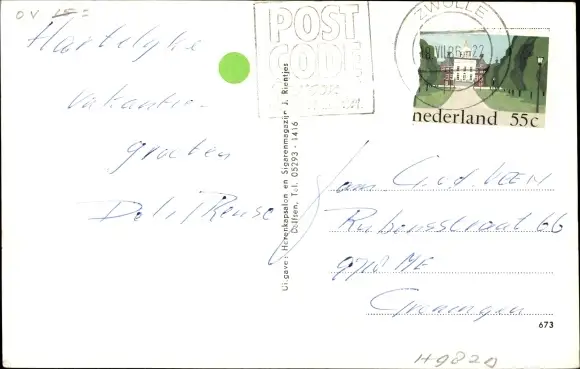 Hartelijke
vakantie-
groeten
POST
CODE
ZWOLLE
nederland 55c
Uitgave: Herenkapsalon en Sigarenmagazijn J. Rientjes
Dalfsen, Tel. 05293 - 1416
Fam G. v.d. VEEN
Rubensstraat 66
9718 ME
Groningen
673
H982D